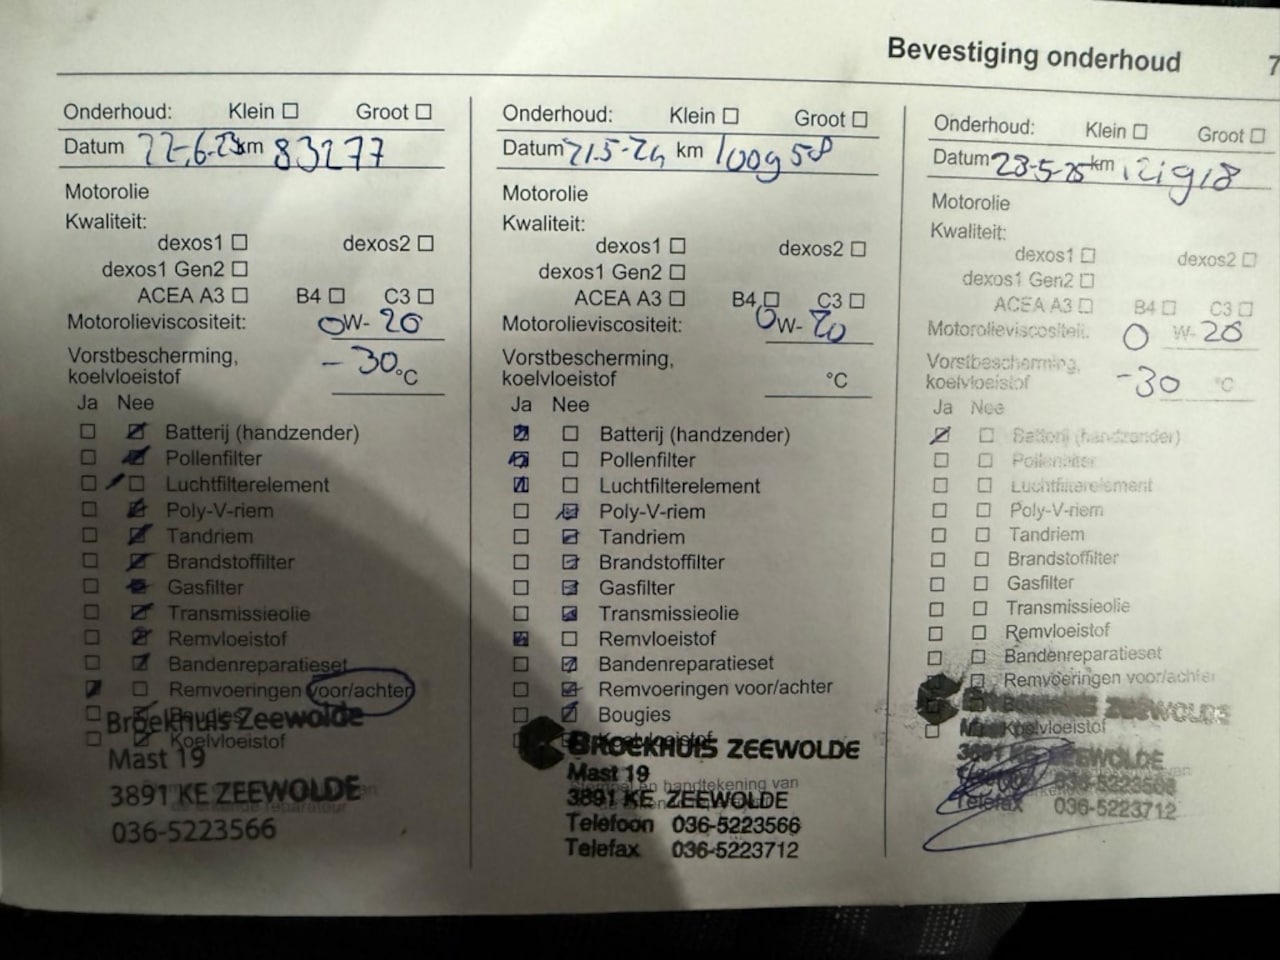 Bevestiging onderhoud 7
Onderhoud: Klein ☐ Groot ☐
Datum 22-6-23 km 83277
Motorolie
Kwaliteit:
dexos1 ☐ dexos2 ☐
dexos1 Gen2 ☐
ACEA A3 ☐ B4 ☐ C3 ☐
Motorolieviscositeit: 0W-20
Vorstbescherming,
koelvloeistof -30 °C
Ja Nee
Batterij (handzender)
Pollenfilter
Luchtfilterelement
Poly-V-riem
Tandriem
Brandstoffilter
Gasfilter
Transmissieolie
Remvloeistof
Bandenreparatieset
Remvoeringen voor/achter
Bougies
Koelvloeistof
Broekhuis Zeewolde
Mast 19
3891 KE ZEEWOLDE
036-5223566
Onderhoud: Klein ☐ Groot ☐
Datum 21-5-24 km 100958
Motorolie
Kwaliteit:
dexos1 ☐ dexos2 ☐
dexos1 Gen2 ☐
ACEA A3 ☐ B4 ☐ C3 ☐
Motorolieviscositeit: 0W-20
Vorstbescherming,
koelvloeistof °C
Ja Nee
Batterij (handzender)
Pollenfilter
Luchtfilterelement
Poly-V-riem
Tandriem
Brandstoffilter
Gasfilter
Transmissieolie
Remvloeistof
Bandenreparatieset
Remvoeringen voor/achter
Bougies
BROEKHUIS ZEEWOLDE
Mast 19
handtekening van
3891 KE ZEEWOLDE
Telefoon 036-5223566
Telefax 036-5223712
Onderhoud: Klein ☐ Groot ☐
Datum 28-5-25 km 121918
Motorolie
Kwaliteit:
dexos1 ☐ dexos2 ☐
dexos1 Gen2 ☐
ACEA A3 ☐ B4 ☐ C3 ☐
Motorolieviscositeit: 0 W-20
Vorstbescherming,
koelvloeistof -30 °C
Ja Nee
Batterij (handzender)
Pollenfilter
Luchtfilterelement
Poly-V-riem
Tandriem
Brandstoffilter
Gasfilter
Transmissieolie
Remvloeistof
Bandenreparatieset
Remvoeringen voor/achter
ZEEWOLDE
Koelvloeistof
3891 KE ZEEWOLDE
036-5223566
Telefax 036-5223712